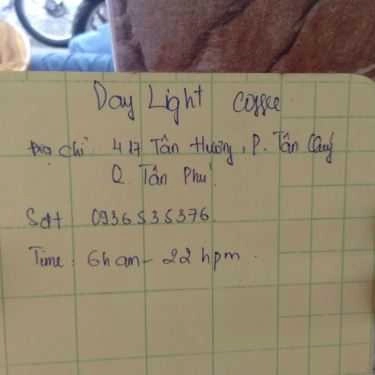 Day Light coffee
Địa chỉ 417 Tân Hương, P. Tân Quý
Q. Tân Phú
Sđt 0936535376
Time : 6h am - 22 hpm.